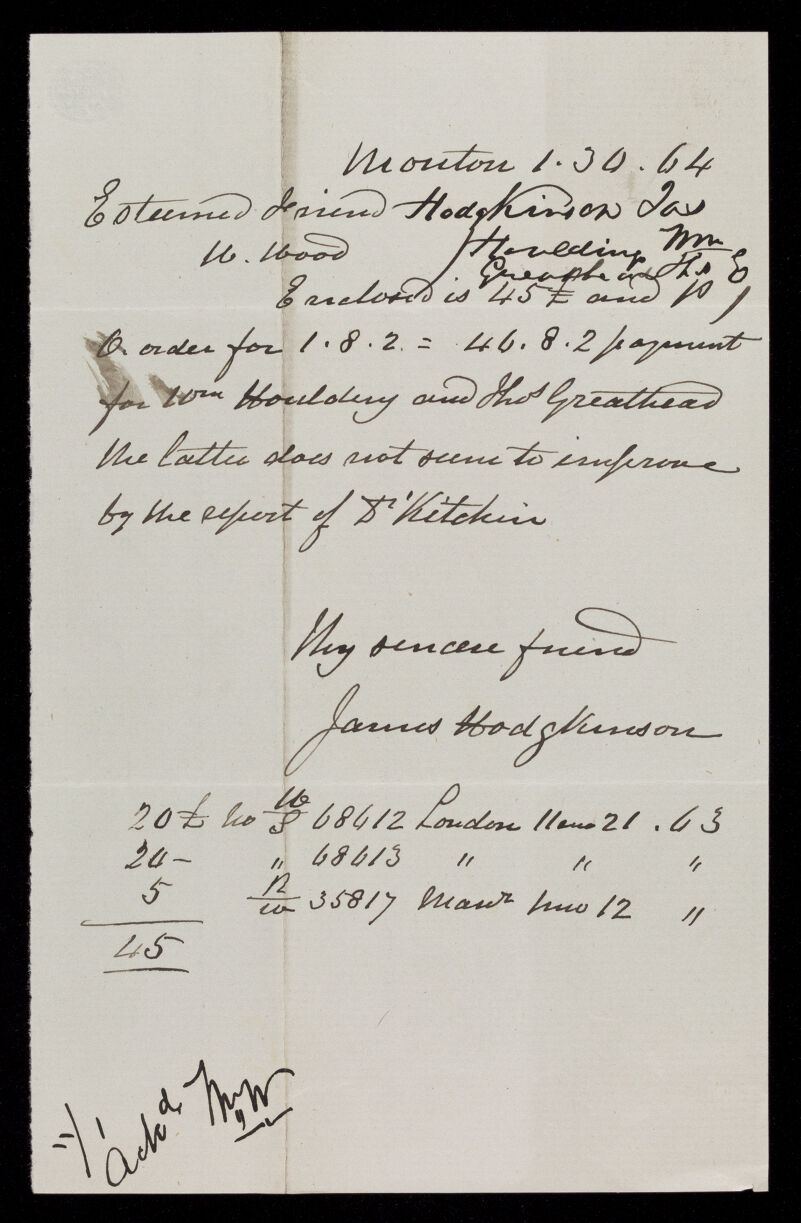 Monton 1.30.64
Esteemed Friend Hodgkinson Jas
W. Wood Houlding Wm
Greathead Thos
Enclosed is 45£ and P
O order for 1.8.2 = 46.8.2 payment
for Wm Houlding and Thos Greathead
the latter does not seem to improve
by the report of Dr Kitchin
Thy sincere friend
James Hodgkinson
20£ No 68612 London 11 mo 21 . 63
20 – " 68613 " " "
5 35817 Manr mo 12 "
45
Ackd WmW